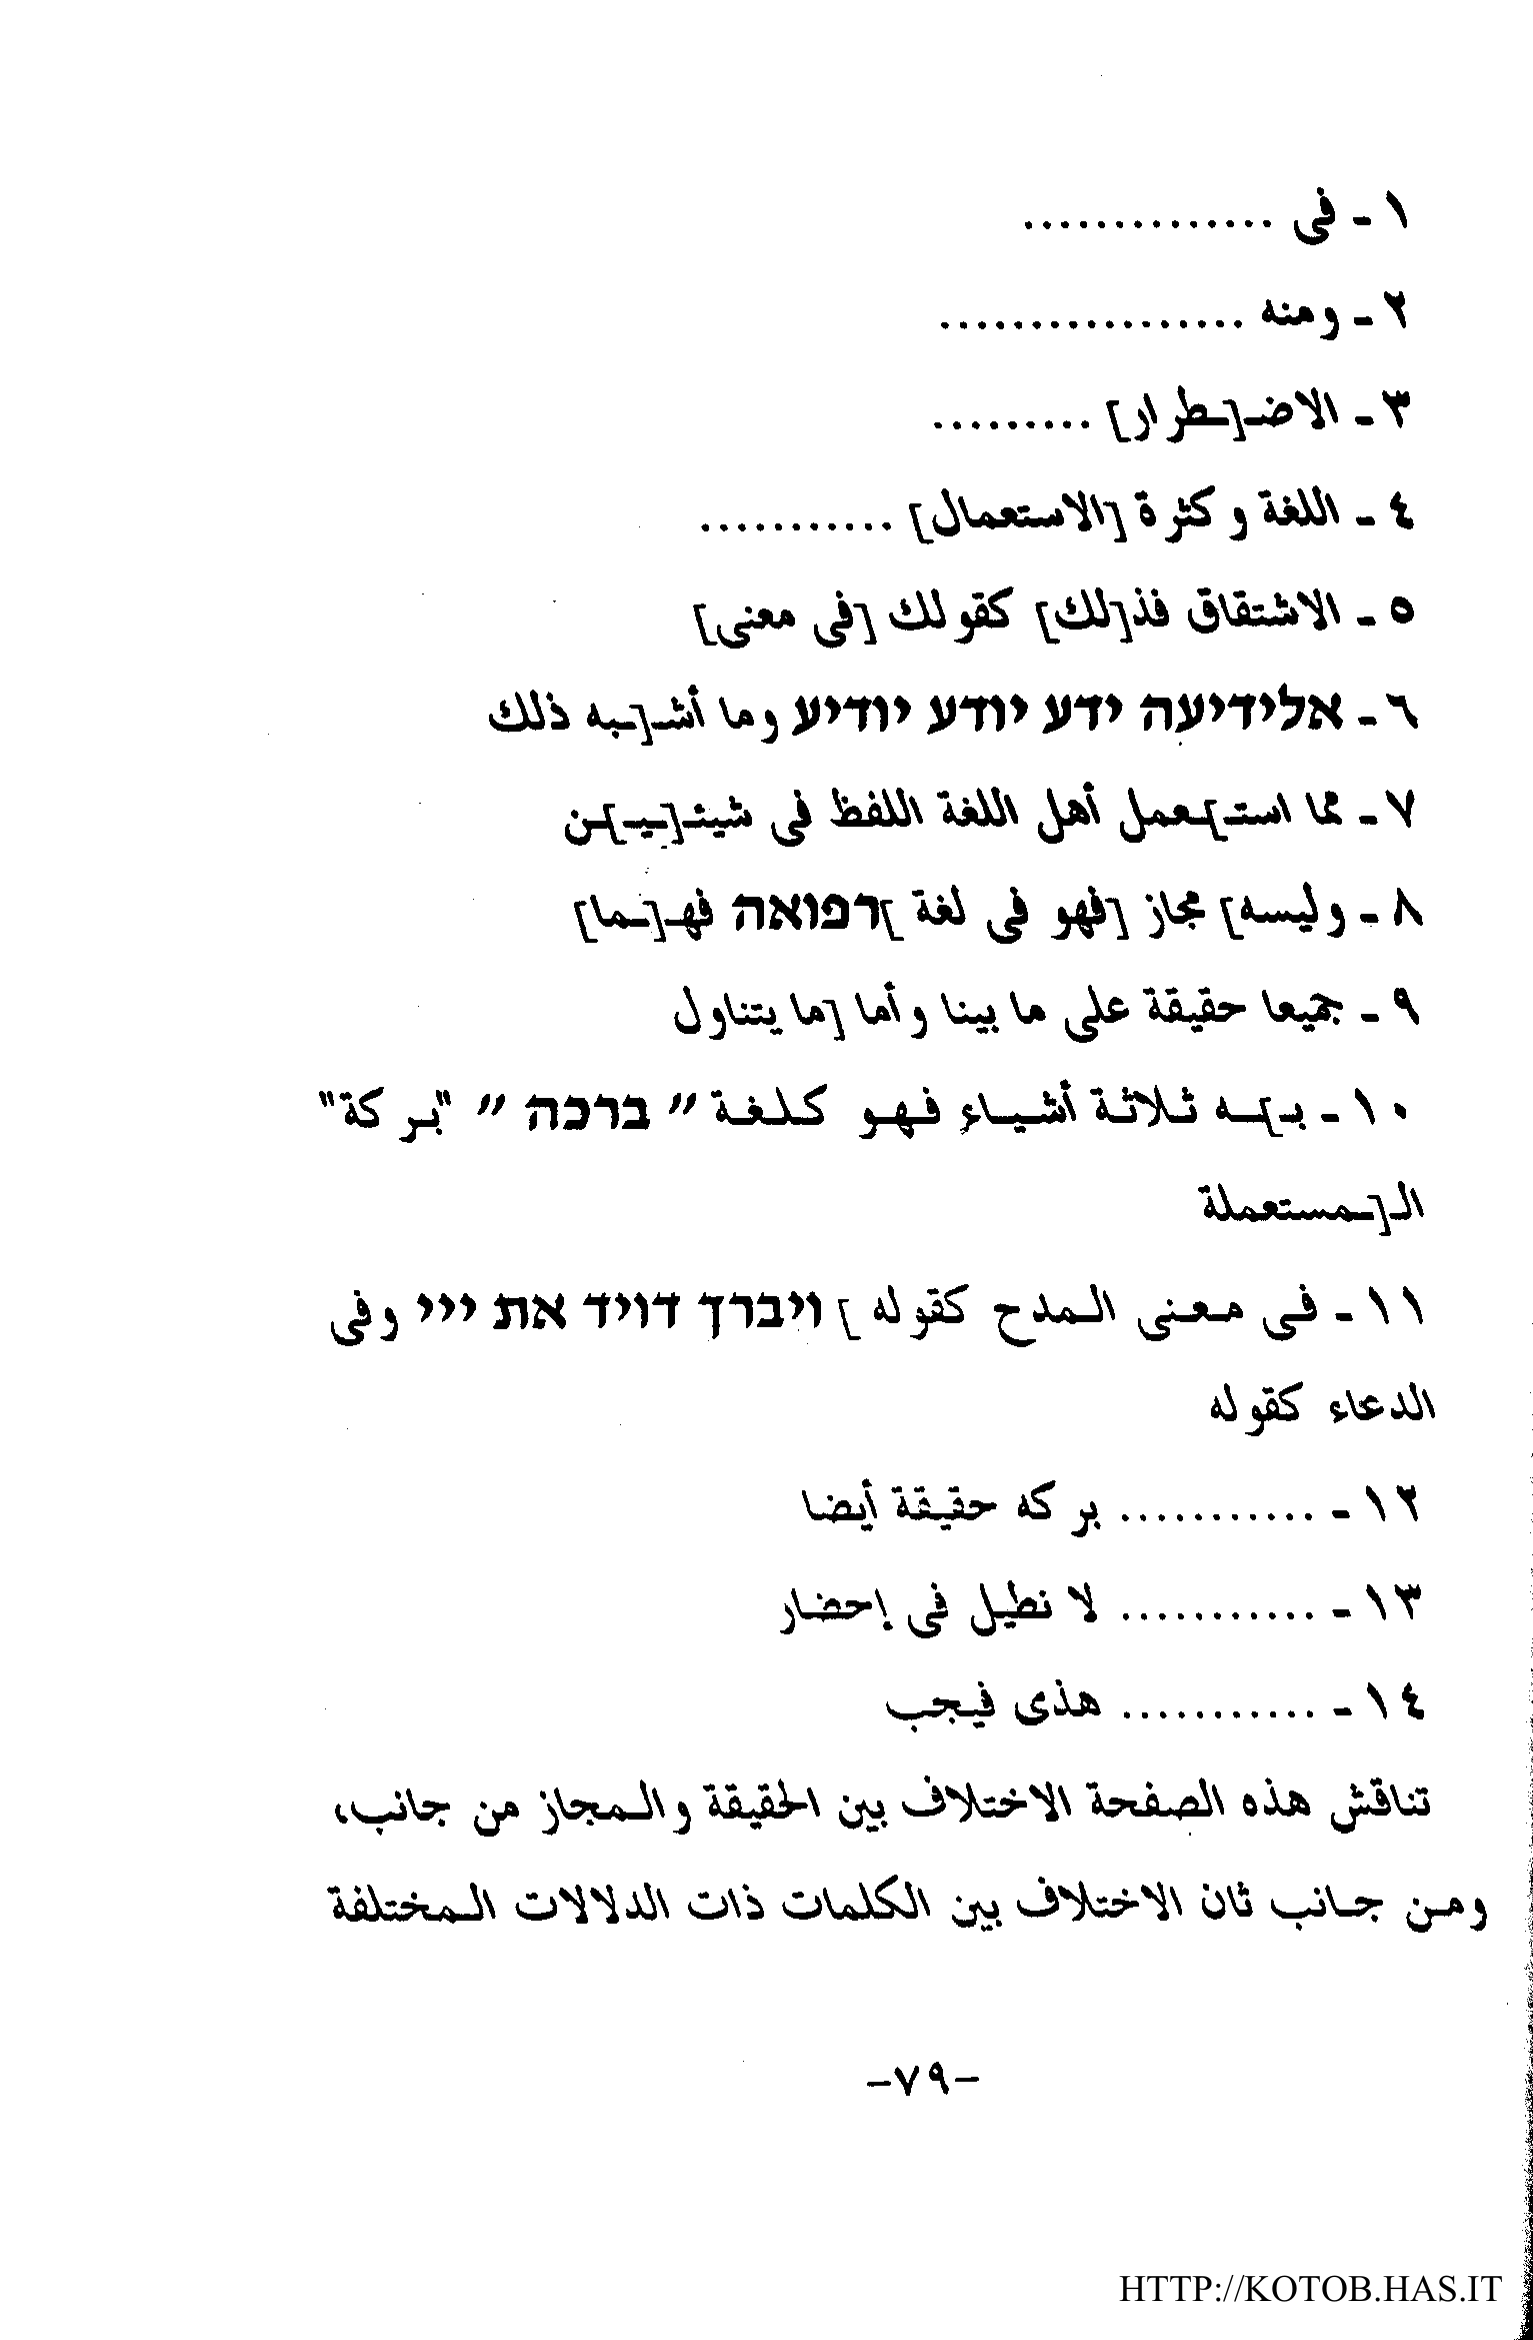 ١ - فى ..............
٢ - ومنه .................
٣ - الاضـ[ـطرار] .........
٤ - اللغة وكثرة [الاستعمال] ...........
٥ - الاشتقاق فذ[لك] كقولك [فى معنى]
٦ - אלידיעה ידע יודע יודיע وما أشـ[ـبه ذلك
٧ - مما استـ]ـعمل أهل اللغة اللفظ فى شيئـ[ـيـ]ـن
٨ - وليسه] مجاز [فهو فى لغة ]רפואה فهـ[ـما]
٩ - جميعا حقيقة على ما بينا وأما [ما يتناول
١٠ - بـ]ـه ثلاثة أشياء فهو كلغة " ברכה " "بركة"
الـ[ـمستعملة
١١ - فى معنى المدح كقوله ] ויברך דויד את ייי وفى
الدعاء كقوله
١٢ - ........... بركه حقيقة أيضا
١٣ - ........... لا نطيل فى إحضار
١٤ - ........... هذى فيجب
تناقش هذه الصفحة الاختلاف بين الحقيقة والمجاز من جانب،
ومن جانب ثان الاختلاف بين الكلمات ذات الدلالات المختلفة
-٧٩-
HTTP://KOTOB.HAS.IT